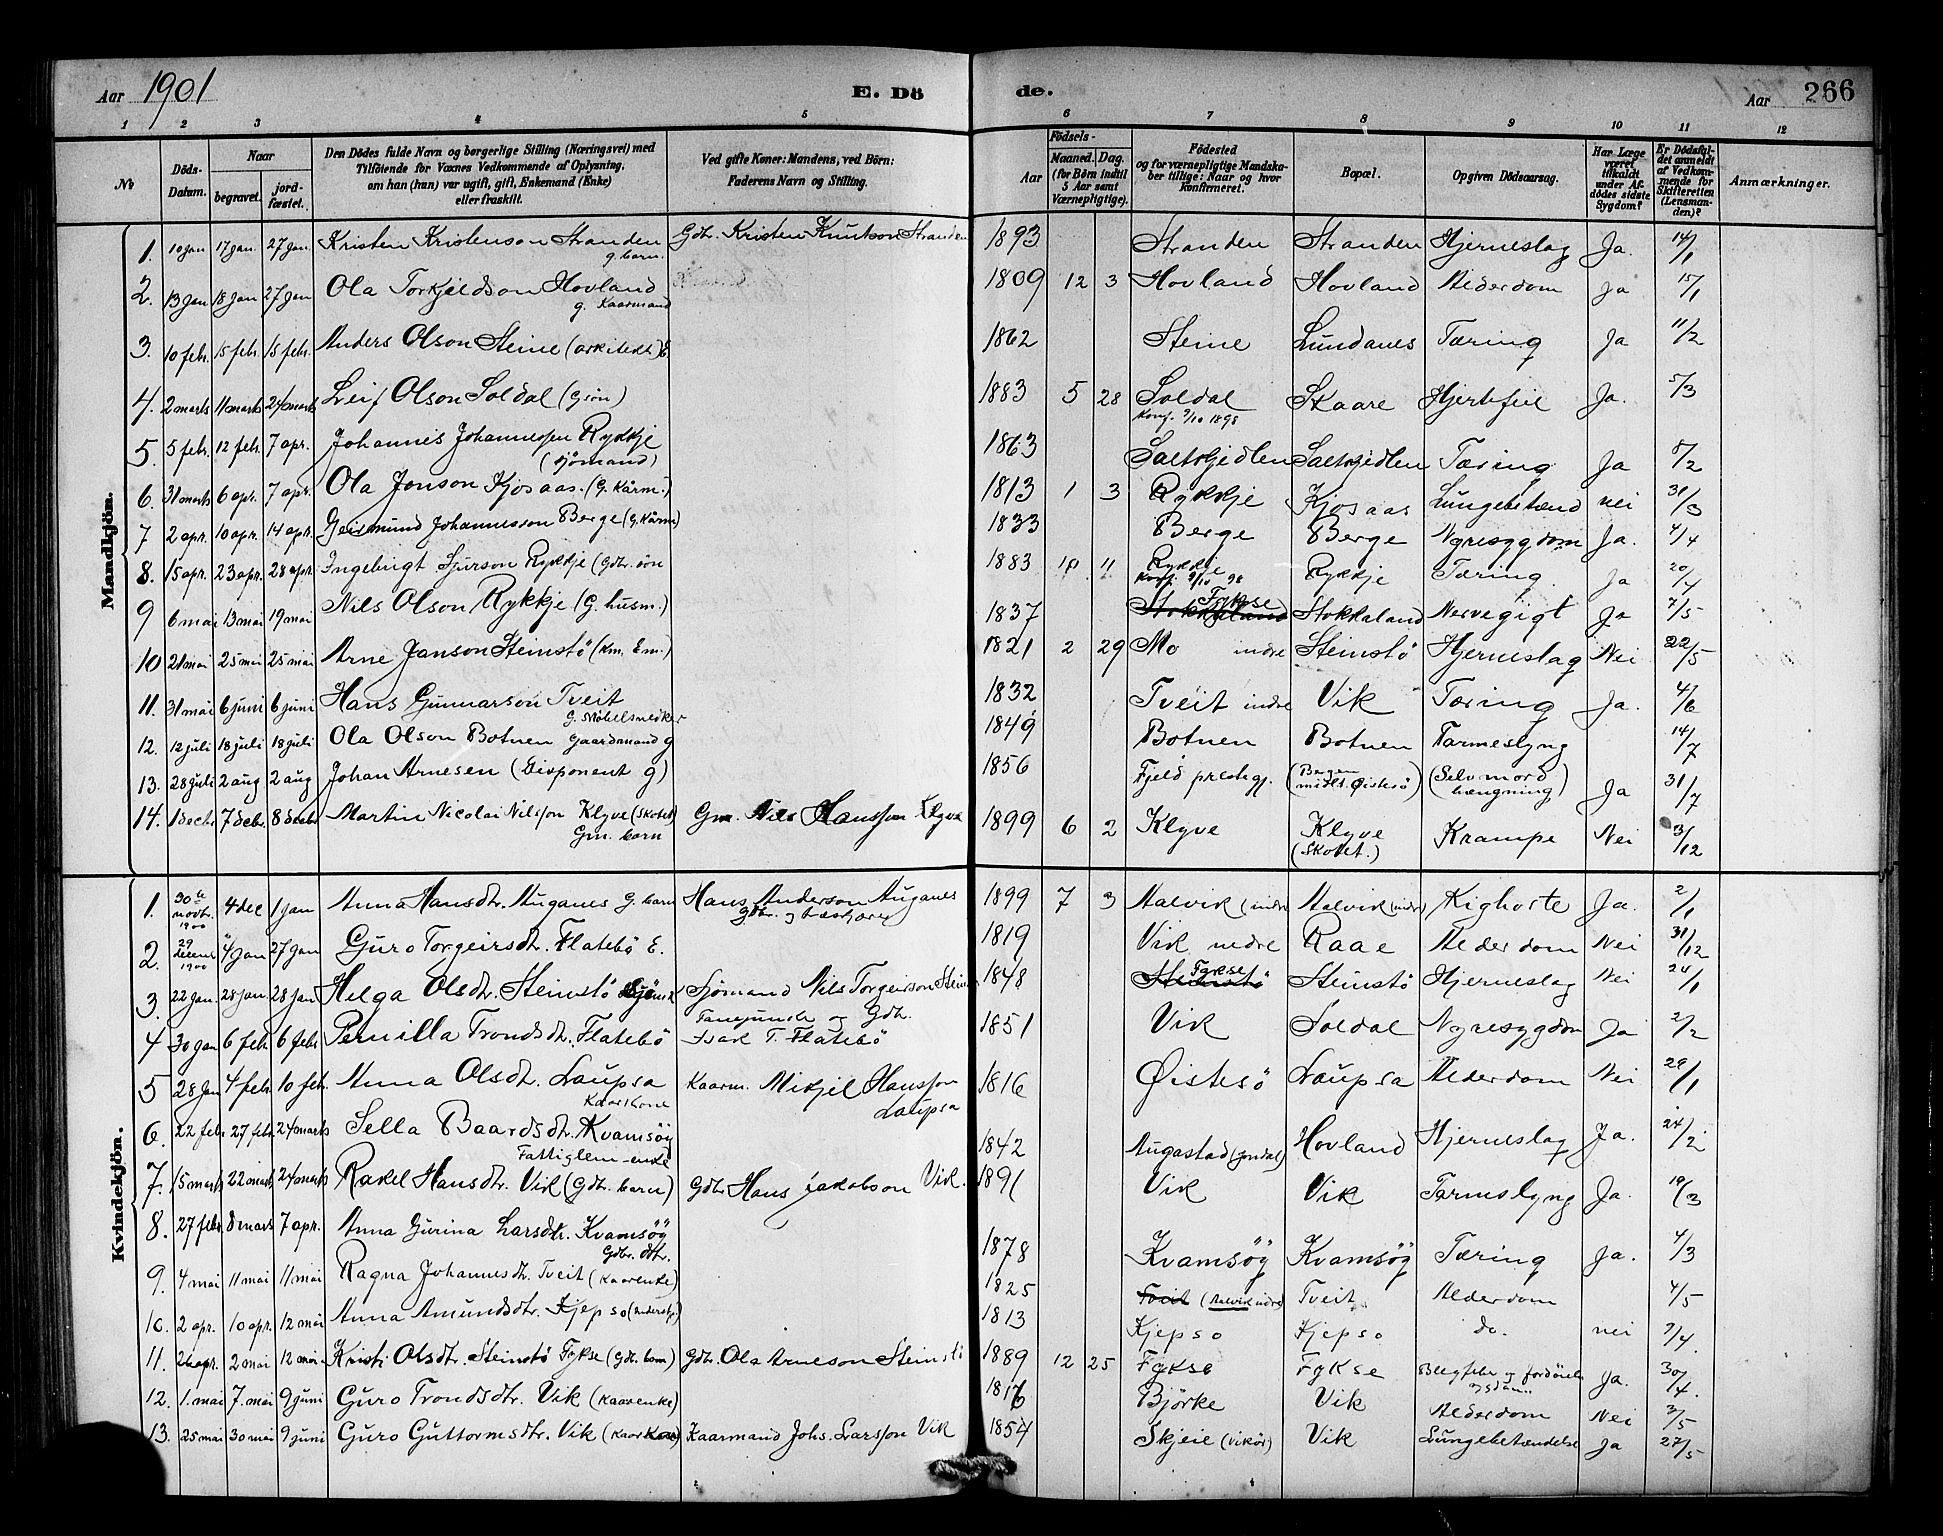 Aar 1901
E. Dö
de.
Aar
266
1 2 3 4 5 6 7 8 9 10 11 12
No
Döds-Datum.
Naar
begravet.
jordfæstet.
Den Dödes fulde Navn og borgerlige Stilling (Næringsvei) med
Tilföiende for Voxnes Vedkommende af Oplysning,
om han (hun) var ugift, gift, Enkemand (Enke)
eller fraskilt.
Ved gifte Koner: Mandens, ved Börn:
Faderens Navn og Stilling.
Födsels-
Aar
Maaned. Dag.
(for Börn indtil
5 Aar samt
Værnepligtige).
Födested
og for værnepligtige Mandska-
ber tillige: Naar og hvor
konfirmeret.
Bopæl.
Opgiven Dödsaarsag.
Har Læge
været
tilkaldt
under Af-
dödes sidste
Sygdom?
Er Dödsfal-
det anmeldt
af Vedkom-
mende for
Skifteretten
(Lensman-
den)?
Anmærkninger.
Mandkjön.
1. 10 jan 17 jan. 27 jan. Kristen Kristenson Stranden g. barn. Gdbr. Kristen Knutson Stranden 1893 Stranden Stranden Hjerneslag Ja. 14/1
2. 13 jan 18 jan 27 jan Ola Torkjeldson Hovland g. Kaarmand 1809 12 3 Hovland Hovland Alderdom Ja 15/1
3. 10 febr. 15 febr. 15 febr. Anders Olson Steine (arkitekt) E. 1862 Steine Lundanes Tæring Ja 11/2
4. 2 marts 11 marts 24 marts Leif Olson Soldal (G sön) 1883 5 28 Soldal Konf. 9/10 1898 Skaare Hjertefeil Ja. 5/3
5. 5 febr. 12 febr. 7 apr. Johannes Johannessen Rykkje (sjömand) 1863 Saltskjedlen Saltskjedlen Tæring Ja 8/2
6. 31 marts 6 apr. 7 apr. Ola Jonson Kjosaas. (G. Kårm.) 1813 1 3 Rykkje Kjosaas Lungebetænd nei 31/3
7 2 apr. 10 apr. 14 apr. Geirmund Johannesson Berge (G. Kårm) 1833 Berge Berge Nyresygdom Ja. 4/4
8. 15 apr. 23 apr. 28 apr. Ingebrigt Sjurson Rykkje (Gdbr. sön 1883 10 11 Rykkje Konf. 9/10 98 Rykkje Tæring. Ja 20/4
9 6 mai 13 mai 19 mai Nils Olson Rykkje (G. husm.) 1837 Stokkaland Fykse Stokkaland Nervegigt Ja 7/5
10 21 mai 25 mai 25 mai Arne Janson Steinstö (Km. Em.) 1821 2 29 Mo indre Steinstö Hjerneslag Nei 22/5
11. 31 mai 6 juni 6 juni Hans Gunnarson Tveit G. Möbelsnedker 1832 Tveit indre Vik Tæring Ja. 4/6
12. 12 juli 18 juli 18 juli Ola Olson Botnen Gaardmand g 1849 Botnen Botnen Tarmeslyng 14/7
13. 28 juli 2 aug 2 aug Johan Arnesen (Disponent g) 1856 Fjeld prestegj. (Bergen midlt. Øistesö) (Selvmord hængning) Ja 31/7
14. 1 decbr. 7 decbr. 8 decbr Martin Nicolai Nilsson Klyve (Skotet) Gm. barn Gm. Nils Hansson Klyve 1899 6 2 Klyve Klyve (Skotet.) Krampe Nei 3/12
Kvindekjön.
1. 30te novbr. 1900 4 dec 1 jan Anna Hansdtr. Auganes G. barn Hans Anderson Auganes Gdbr. og 1899 7 3 Aalvik (indre Aalvik (indre) Kighoste Ja. 2/1
2. 29 decemb 1900 4 jan 27 jan Guro Torgeirsdtr. Flatebö E. 1819 Vik nedre Raae Alderdom Nei 31/12
3. 22 jan. 28 jan 28 jan Helga Olsdtr. Steinstö Sjömand Nils Torgeirson Stein 1848 Steinstö Fykse Steinstö Hjerneslag Nei 24/1
4 30 jan 6 febr 6 febr Pernilla Trondsdtr. Flatebö og Gdbr. Isak T. Flatebö 1851 Vik Soldal Nyresygdom Ja 2/2
5 28 jan 4 febr. 10 febr. Anna Olsdtr. Laupsa Kaarkone Kaarm. Mikjel Hansson Laupsa 1816 Øistesö Laupsa Alderdom Nei 29/1
6. 22 febr 27 febr. 24 marts Sella Baardsdtr. Kvamsöy Fattiglem - enke 1842 Augastad (Jondal) Hovland Hjerneslag Ja. 24/2
7. 15 marts 22 marts 24 marts Rakel Hansdtr. Vik (Gdbr. barn) Gdbr Hans Jakobson Vik. 1891 Vik Vik Tarmslyng Ja. 19/3
8. 27 febr 8 mars 7 apr. Anna Gurina Larsdtr. Kvamsöy Gdbr. dtr. 1878 Kvamsöy Kvamsöy Tæring Ja. 4/3
9. 4 mai 11 mai 11 mai Ragna Johannesdtr. Tveit (Kaarenke) 1825 Tveit (Aalvik indre) Tveit Alderdom 4/5
10. 2 apr. 10 apr. 12 mai Anna Amundsdtr. Kjepso (understp.) 1813 Kjepso Kjepso do. nei 7/4.
11. 26 apr. 2 mai 12 mai Kristi Olsdtr. Steinstö Fykse (Gdb. barn) Gdbr. Ola Arneson Steinstö 1889 12 25 Fykse Fykse Blegfeber og Ja. 30/4.
12. 1. mai 7. mai 9 juni Guro Trondsdtr. Vik (Kaarenke) 1816 Björke Vik Alderdom Nei 3/5
13. 25 mai 30 mai 9 juni Guro Guttormsdtr. Vik (Kaarkone) Kaarmand Johs. Larsson Vik 1854 Skjeie (Vikör) Vik Lungebetændelse Ja 27/5